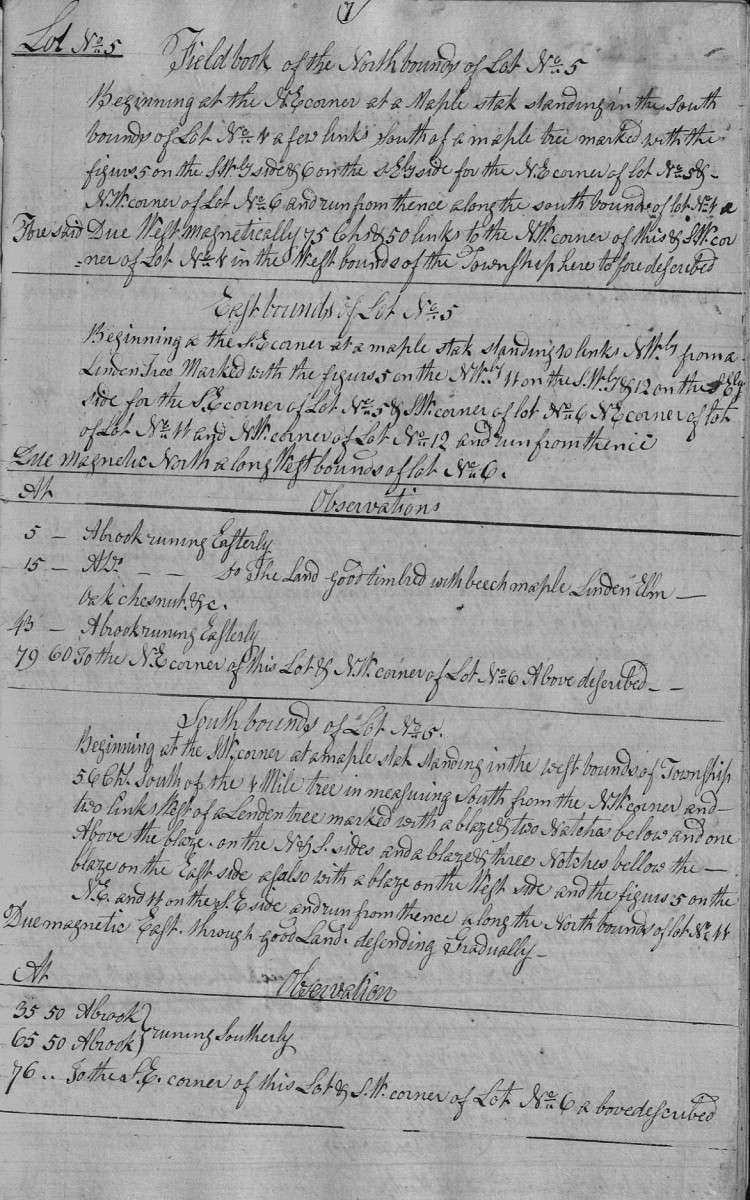 7
Lot No. 5
Field book of the North bounds of Lot No. 5
Beginning at the N.E corner at a Maple stak standing in the South
bounds of Lot No. 4 a few links South of a maple tree marked with the
figurs 5 on the S.W.ly side & 6 on the S.E.ly side for the N.E corner of lot No. 5 &
N.W. corner of Lot No. 6 and run from thence along the south bounds of lot No. 4 a
Fore said Due West magnetically 75 Ch. & 50 links to the N.W. corner of this & S.W. cor
=ner of Lot No. 4 in the West bounds of the Township here to fore described
East bounds of Lot No. 5
Beginning a the S.E corner at a maple stak standing 10 links N.W.ly from a
Linden Tree Marked with the figurs 5 on the N.W.ly 11 on the S.W.ly & 12 on the S.E.ly
side for the S.E corner of Lot No. 5 & S.W. corner of lot No. 6 N.E corner of Lot
of Lot No. 11 and N.W. corner of Lot No. 12 and run from thence
Due magnetic North along West bounds of lot No. 6.
At Observations
5 — A brook runing Easterly
15 — A Do — — Do The Land good timbred with beech maple Linden Elm —
oak chesnut &c.
43 — A brook runing Easterly
79 60 To the N.E corner of this Lot & N.W. corner of Lot No. 6 Above described — —
South bounds of Lot No. 5.
Beginning at the S.W. corner at a maple stak standing in the west bounds of Township
56 Ch. South of the 4 Mile tree in measuring South from the N.W. corner and
two links West of a Lenden tree marked with a blaze & two Natches below and one
Above the blaze on the N & S. sides and a blaze & three Notches bellow the —
blaze on the East side as also with a blaze on the West side and the figurs 5 on the
N.E. and 11 on the S.E side and run from thence along the North bounds of lot No. 11
Due magnetic East. through good Land. desending Gradually —
At Observation
35 50 A brook
65 50 A brook } runing Southerly
76 .. To the S.E. corner of this Lot & S.W. corner of Lot No. 6 a bove described